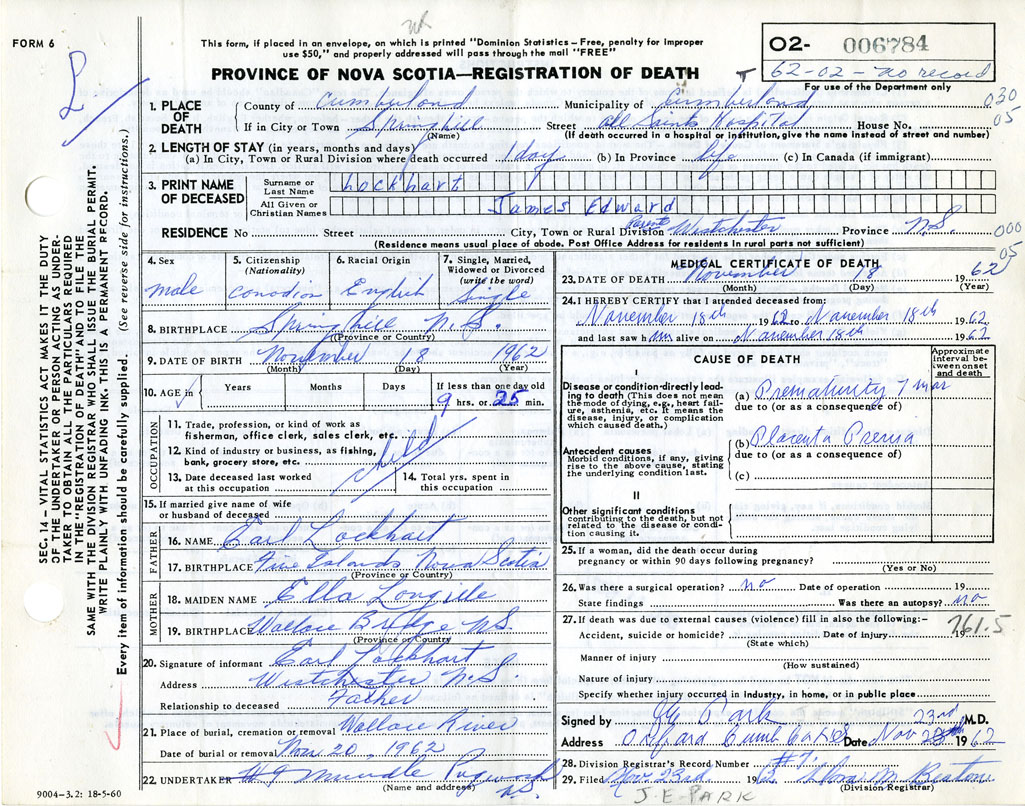 FORM 6
This form, if placed in an envelope, on which is printed "Dominion Statistics – Free, penalty for improper
use $50," and properly addressed will pass through the mail "FREE"
PROVINCE OF NOVA SCOTIA—REGISTRATION OF DEATH
O2- 006784
62-02 - no record
For use of the Department only
030
05
SEC. 14 – VITAL STATISTICS ACT MAKES IT THE DUTY
OF THE UNDERTAKER OR PERSON ACTING AS UNDER-
TAKER TO OBTAIN ALL THE PARTICULARS REQUIRED
IN THE "REGISTRATION OF DEATH" AND TO FILE THE
SAME WITH THE DIVISION REGISTRAR WHO SHALL ISSUE THE BURIAL PERMIT.
WRITE PLAINLY WITH UNFADING INK. THIS IS A PERMANENT RECORD.
Every item of information should be carefully supplied. (See reverse side for instructions.)
1. PLACE OF DEATH
County of Cumberland Municipality of Cumberland
If in City or Town Springhill Street All Saints Hospital House No.
(Name) (If death occurred in a hospital or institution, give the name instead of street and number)
2. LENGTH OF STAY (in years, months and days)
(a) In City, Town or Rural Division where death occurred 1 day (b) In Province life (c) In Canada (if immigrant)
3. PRINT NAME OF DECEASED
Surname or Last Name Lockhart
All Given or Christian Names James Edward
RESIDENCE No Street City, Town or Rural Division Parents Westchester Province N.S.
(Residence means usual place of abode. Post Office Address for residents in rural parts not sufficient)
000
05
4. Sex
male
5. Citizenship
(Nationality)
Canadian
6. Racial Origin
English
7. Single, Married,
Widowed or Divorced
(write the word)
Single
8. BIRTHPLACE Springhill N.S.
(Province or Country)
9. DATE OF BIRTH November 18 1962
(Month) (Day) (Year)
10. AGE in
Years Months Days If less than one day old
9 hrs. or 25 min.
OCCUPATION
11. Trade, profession, or kind of work as
fisherman, office clerk, sales clerk, etc.
12. Kind of industry or business, as fishing,
bank, grocery store, etc.
child
13. Date deceased last worked
at this occupation
14. Total yrs. spent in
this occupation
15. If married give name of wife
or husband of deceased
FATHER
16. NAME Earl Lockhart
17. BIRTHPLACE Five Islands Nova Scotia
(Province or Country)
MOTHER
18. MAIDEN NAME Ella Longille
19. BIRTHPLACE Wallace Bridge N.S.
(Province or Country)
20. Signature of informant Earl Lockhart
Address Westchester N.S.
Relationship to deceased Father
21. Place of burial, cremation or removal Wallace River
Date of burial or removal Nov. 20, 1962
22. UNDERTAKER Pugwash
N.S.
(Name and address)
9004-3.2: 18-5-60
MEDICAL CERTIFICATE OF DEATH
23. DATE OF DEATH November 18 1962
(Month) (Day) (Year)
24. I HEREBY CERTIFY that I attended deceased from:
November 18th 1962 to November 18th 1962
and last saw him alive on November 18th 1962
CAUSE OF DEATH
Approximate
interval be-
tween onset
and death
I
Disease or condition directly lead-
ing to death (This does not mean
the mode of dying, e.g., heart fail-
ure, asthenia, etc. It means the
disease, injury, or complication
which caused death.)
(a) Prematurity 7 mos
due to (or as a consequence of)
Antecedent causes
Morbid conditions, if any, giving
rise to the above cause, stating
the underlying condition last.
(b) Placenta Previa
due to (or as a consequence of)
(c)
II
Other significant conditions
contributing to the death, but not
related to the disease or condi-
tion causing it.
25. If a woman, did the death occur during
pregnancy or within 90 days following pregnancy?
(Yes or No)
26. Was there a surgical operation? no Date of operation 19
State findings Was there an autopsy? no
27. If death was due to external causes (violence) fill in also the following:–
761.5
Accident, suicide or homicide? Date of injury 19
(State which)
Manner of injury
(How sustained)
Nature of injury
Specify whether injury occurred in industry, in home, or in public place
Signed by Park M.D.
23rd
Address Oxford Cumb Date Nov 1962
28. Division Registrar's Record Number #7
29. Filed Nov. 23rd 1962
(Division Registrar)
J-E-PARK